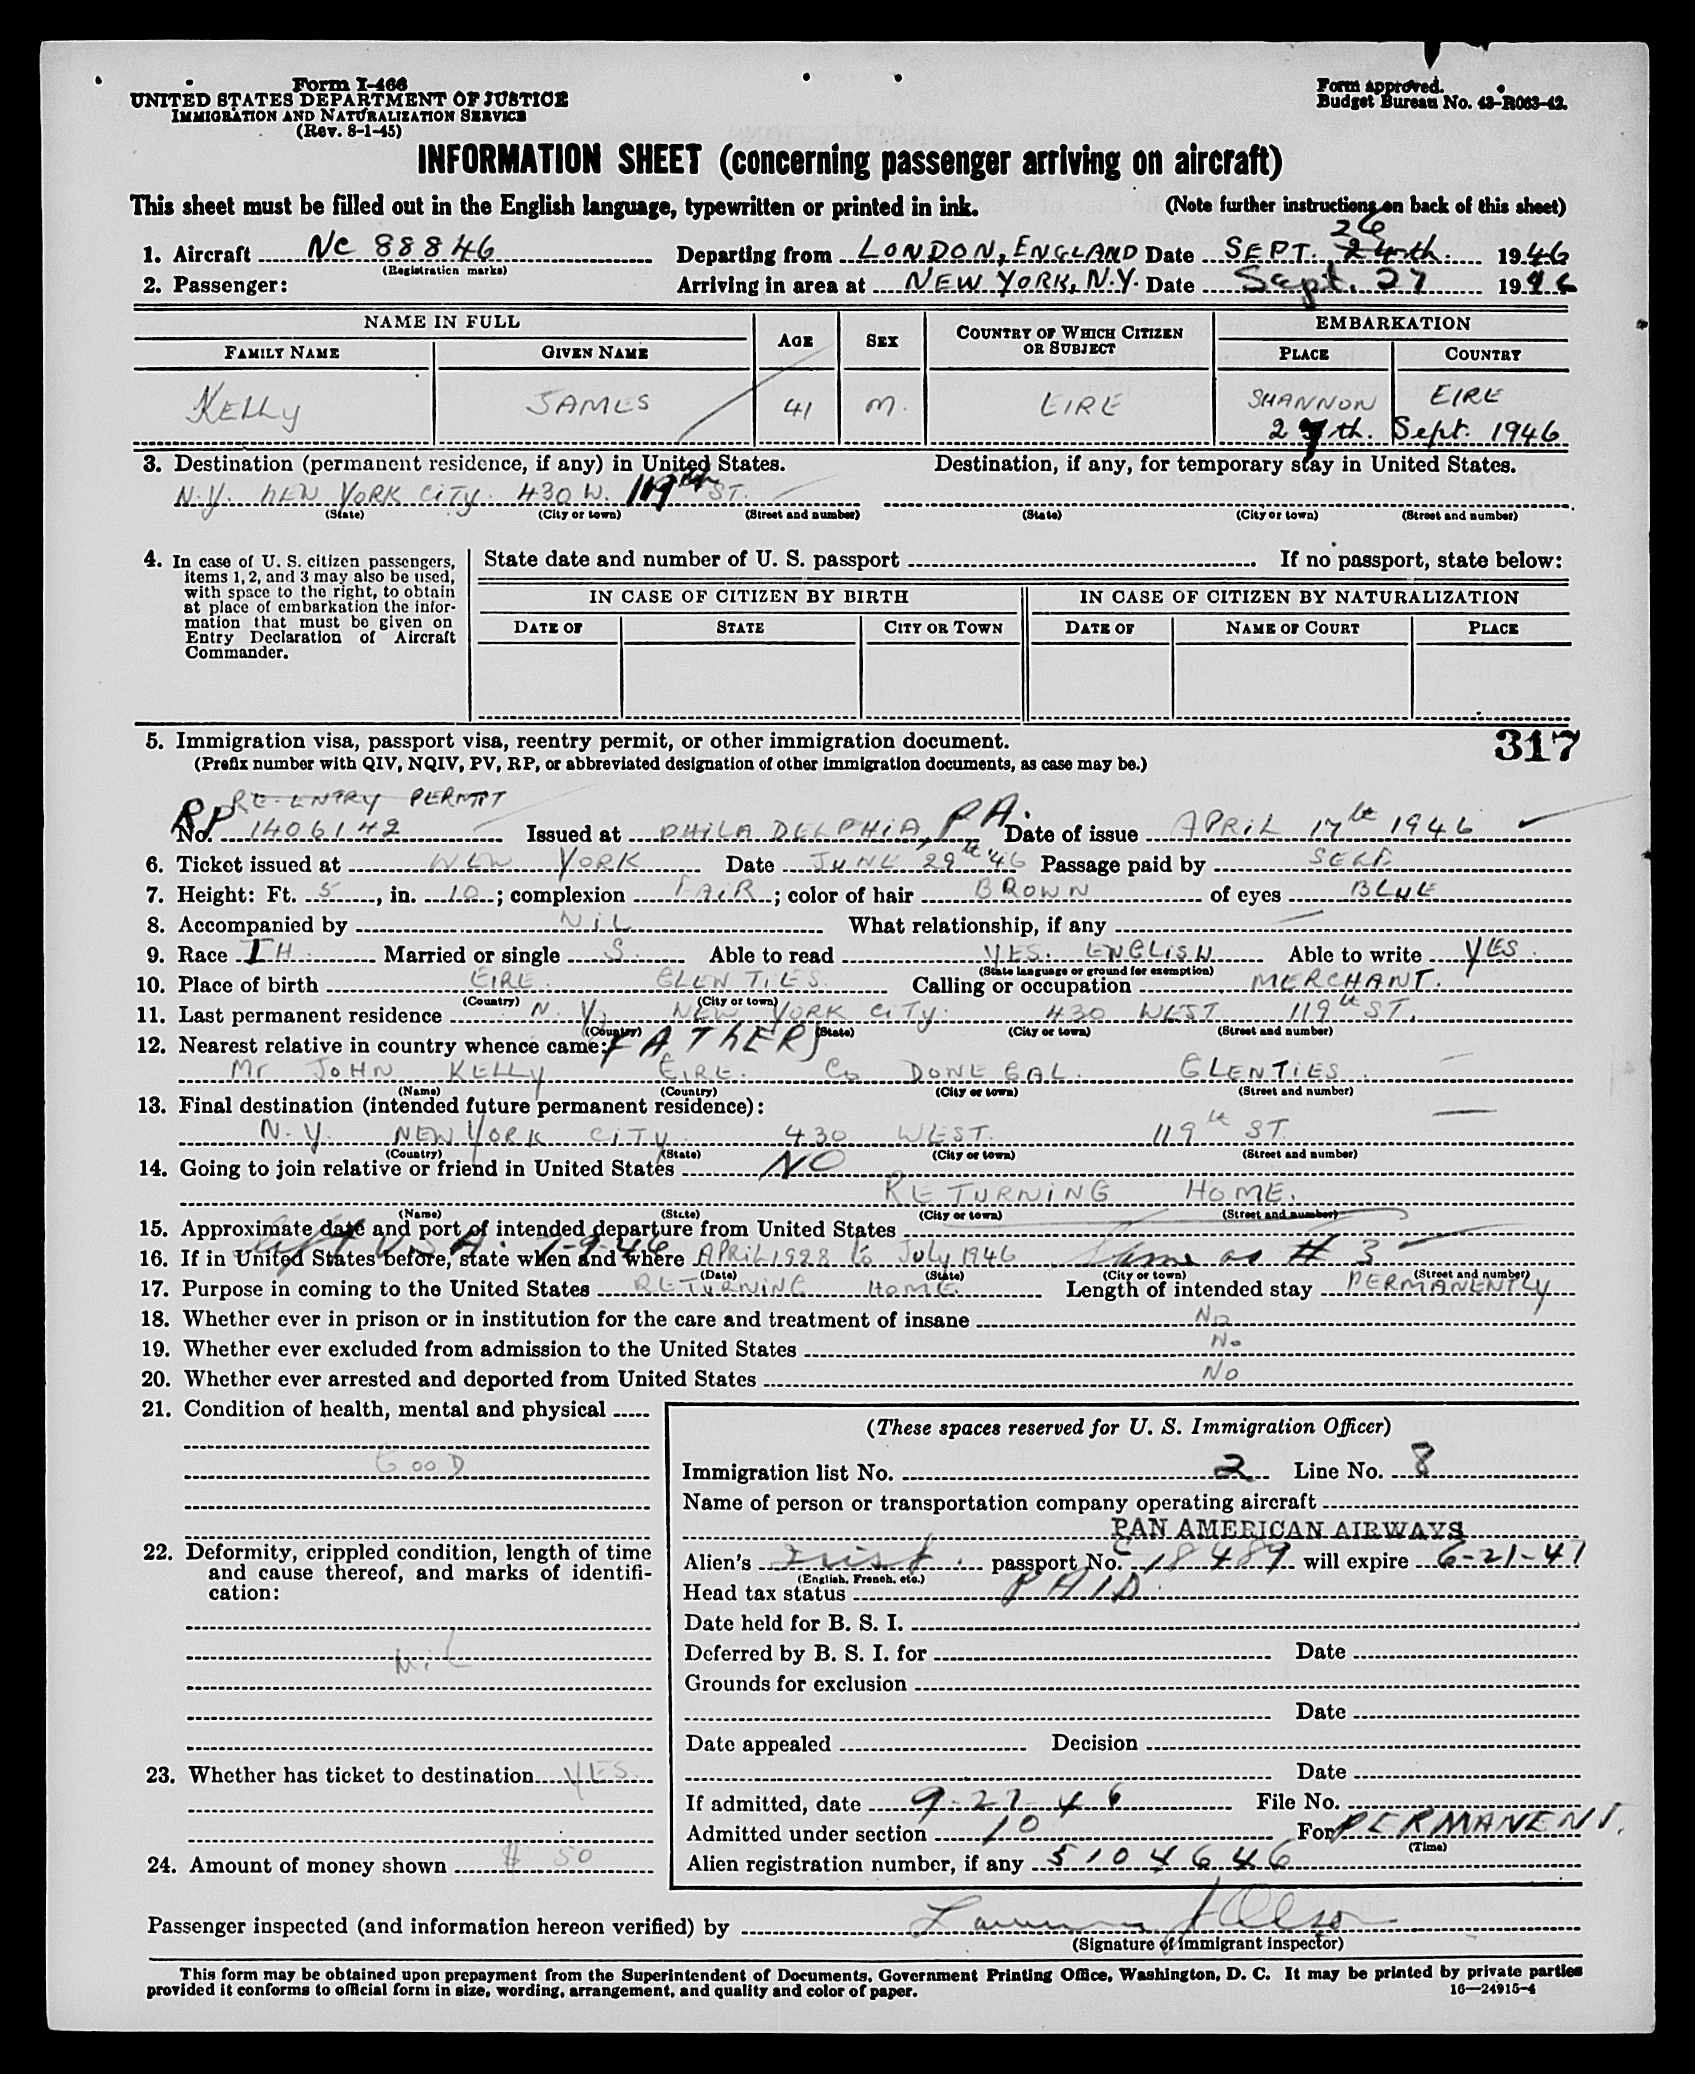 Form I-466
UNITED STATES DEPARTMENT OF JUSTICE
IMMIGRATION AND NATURALIZATION SERVICE
(Rev. 8-1-45)
Form approved.
Budget Bureau No. 43-R063-42.
INFORMATION SHEET (concerning passenger arriving on aircraft)
This sheet must be filled out in the English language, typewritten or printed in ink. (Note further instructions on back of this sheet)
26
1. Aircraft NC 88846 Departing from LONDON, ENGLAND Date SEPT. 24th. 1946
(Registration marks)
2. Passenger: Arriving in area at NEW YORK, N.Y. Date Sept. 27 1946
NAME IN FULL AGE SEX COUNTRY OF WHICH CITIZEN OR SUBJECT EMBARKATION
FAMILY NAME GIVEN NAME PLACE COUNTRY
KELLY JAMES 41 M. EIRE SHANNON EIRE
27th. Sept. 1946
3. Destination (permanent residence, if any) in United States. Destination, if any, for temporary stay in United States.
N.Y. NEW YORK CITY. 430 W. 119th ST.
(State) (City or town) (Street and number) (State) (City or town) (Street and number)
4. In case of U. S. citizen passengers, items 1, 2, and 3 may also be used, with space to the right, to obtain at place of embarkation the information that must be given on Entry Declaration of Aircraft Commander.
State date and number of U. S. passport If no passport, state below:
IN CASE OF CITIZEN BY BIRTH IN CASE OF CITIZEN BY NATURALIZATION
DATE OF STATE CITY OR TOWN DATE OF NAME OF COURT PLACE
5. Immigration visa, passport visa, reentry permit, or other immigration document. 317
(Prefix number with QIV, NQIV, PV, RP, or abbreviated designation of other immigration documents, as case may be.)
RP RE-ENTRY PERMIT
No. 1406142 Issued at PHILADELPHIA, PA. Date of issue APRIL 17th 1946
6. Ticket issued at NEW YORK Date JUNE 29th '46 Passage paid by SELF
7. Height: Ft. 5, in. 10; complexion FAIR; color of hair BROWN of eyes BLUE
8. Accompanied by NIL What relationship, if any —
9. Race IH Married or single S. Able to read YES. ENGLISH Able to write YES
(State language or ground for exemption)
10. Place of birth EIRE. GLENTIES. Calling or occupation MERCHANT.
(Country) (City or town)
11. Last permanent residence N.Y. NEW YORK CITY. 430 WEST 119th ST.
(Country) (State) (City or town) (Street and number)
12. Nearest relative in country whence came: FATHER
Mr JOHN KELLY EIRE. Co DONEGAL. GLENTIES.
(Name) (Country) (City or town) (Street and number)
13. Final destination (intended future permanent residence):
N.Y. NEW YORK CITY. 430 WEST. 119th ST.
(Country) (State) (City or town) (Street and number)
14. Going to join relative or friend in United States NO
RETURNING HOME.
(Name) (State) (City or town) (Street and number)
15. Approximate date and port of intended departure from United States
left U.S.A. 7-9-46
16. If in United States before, state when and where APRIL 1928 to JULY 1946 Same as # 3
(Date) (State) (City or town) (Street and number)
17. Purpose in coming to the United States RETURNING HOME. Length of intended stay PERMANENTLY
18. Whether ever in prison or in institution for the care and treatment of insane No
19. Whether ever excluded from admission to the United States No
20. Whether ever arrested and deported from United States No
21. Condition of health, mental and physical
GOOD
22. Deformity, crippled condition, length of time and cause thereof, and marks of identification:
NiL
23. Whether has ticket to destination YES.
24. Amount of money shown $ 50
(These spaces reserved for U. S. Immigration Officer)
Immigration list No. 2 Line No. 8
Name of person or transportation company operating aircraft
PAN AMERICAN AIRWAYS
Alien's Irish. passport No. C 18489 will expire 6-21-47
(English, French, etc.)
Head tax status PAID
Date held for B. S. I.
Deferred by B. S. I. for Date
Grounds for exclusion
Date
Date appealed Decision
Date
If admitted, date 9-27-46 File No.
Admitted under section 10 For PERMANENT.
(Time)
Alien registration number, if any 5104646
Passenger inspected (and information hereon verified) by
(Signature of immigrant inspector)
This form may be obtained upon prepayment from the Superintendent of Documents, Government Printing Office, Washington, D. C. It may be printed by private parties
provided it conforms to official form in size, wording, arrangement, and quality and color of paper. 16—24915-4